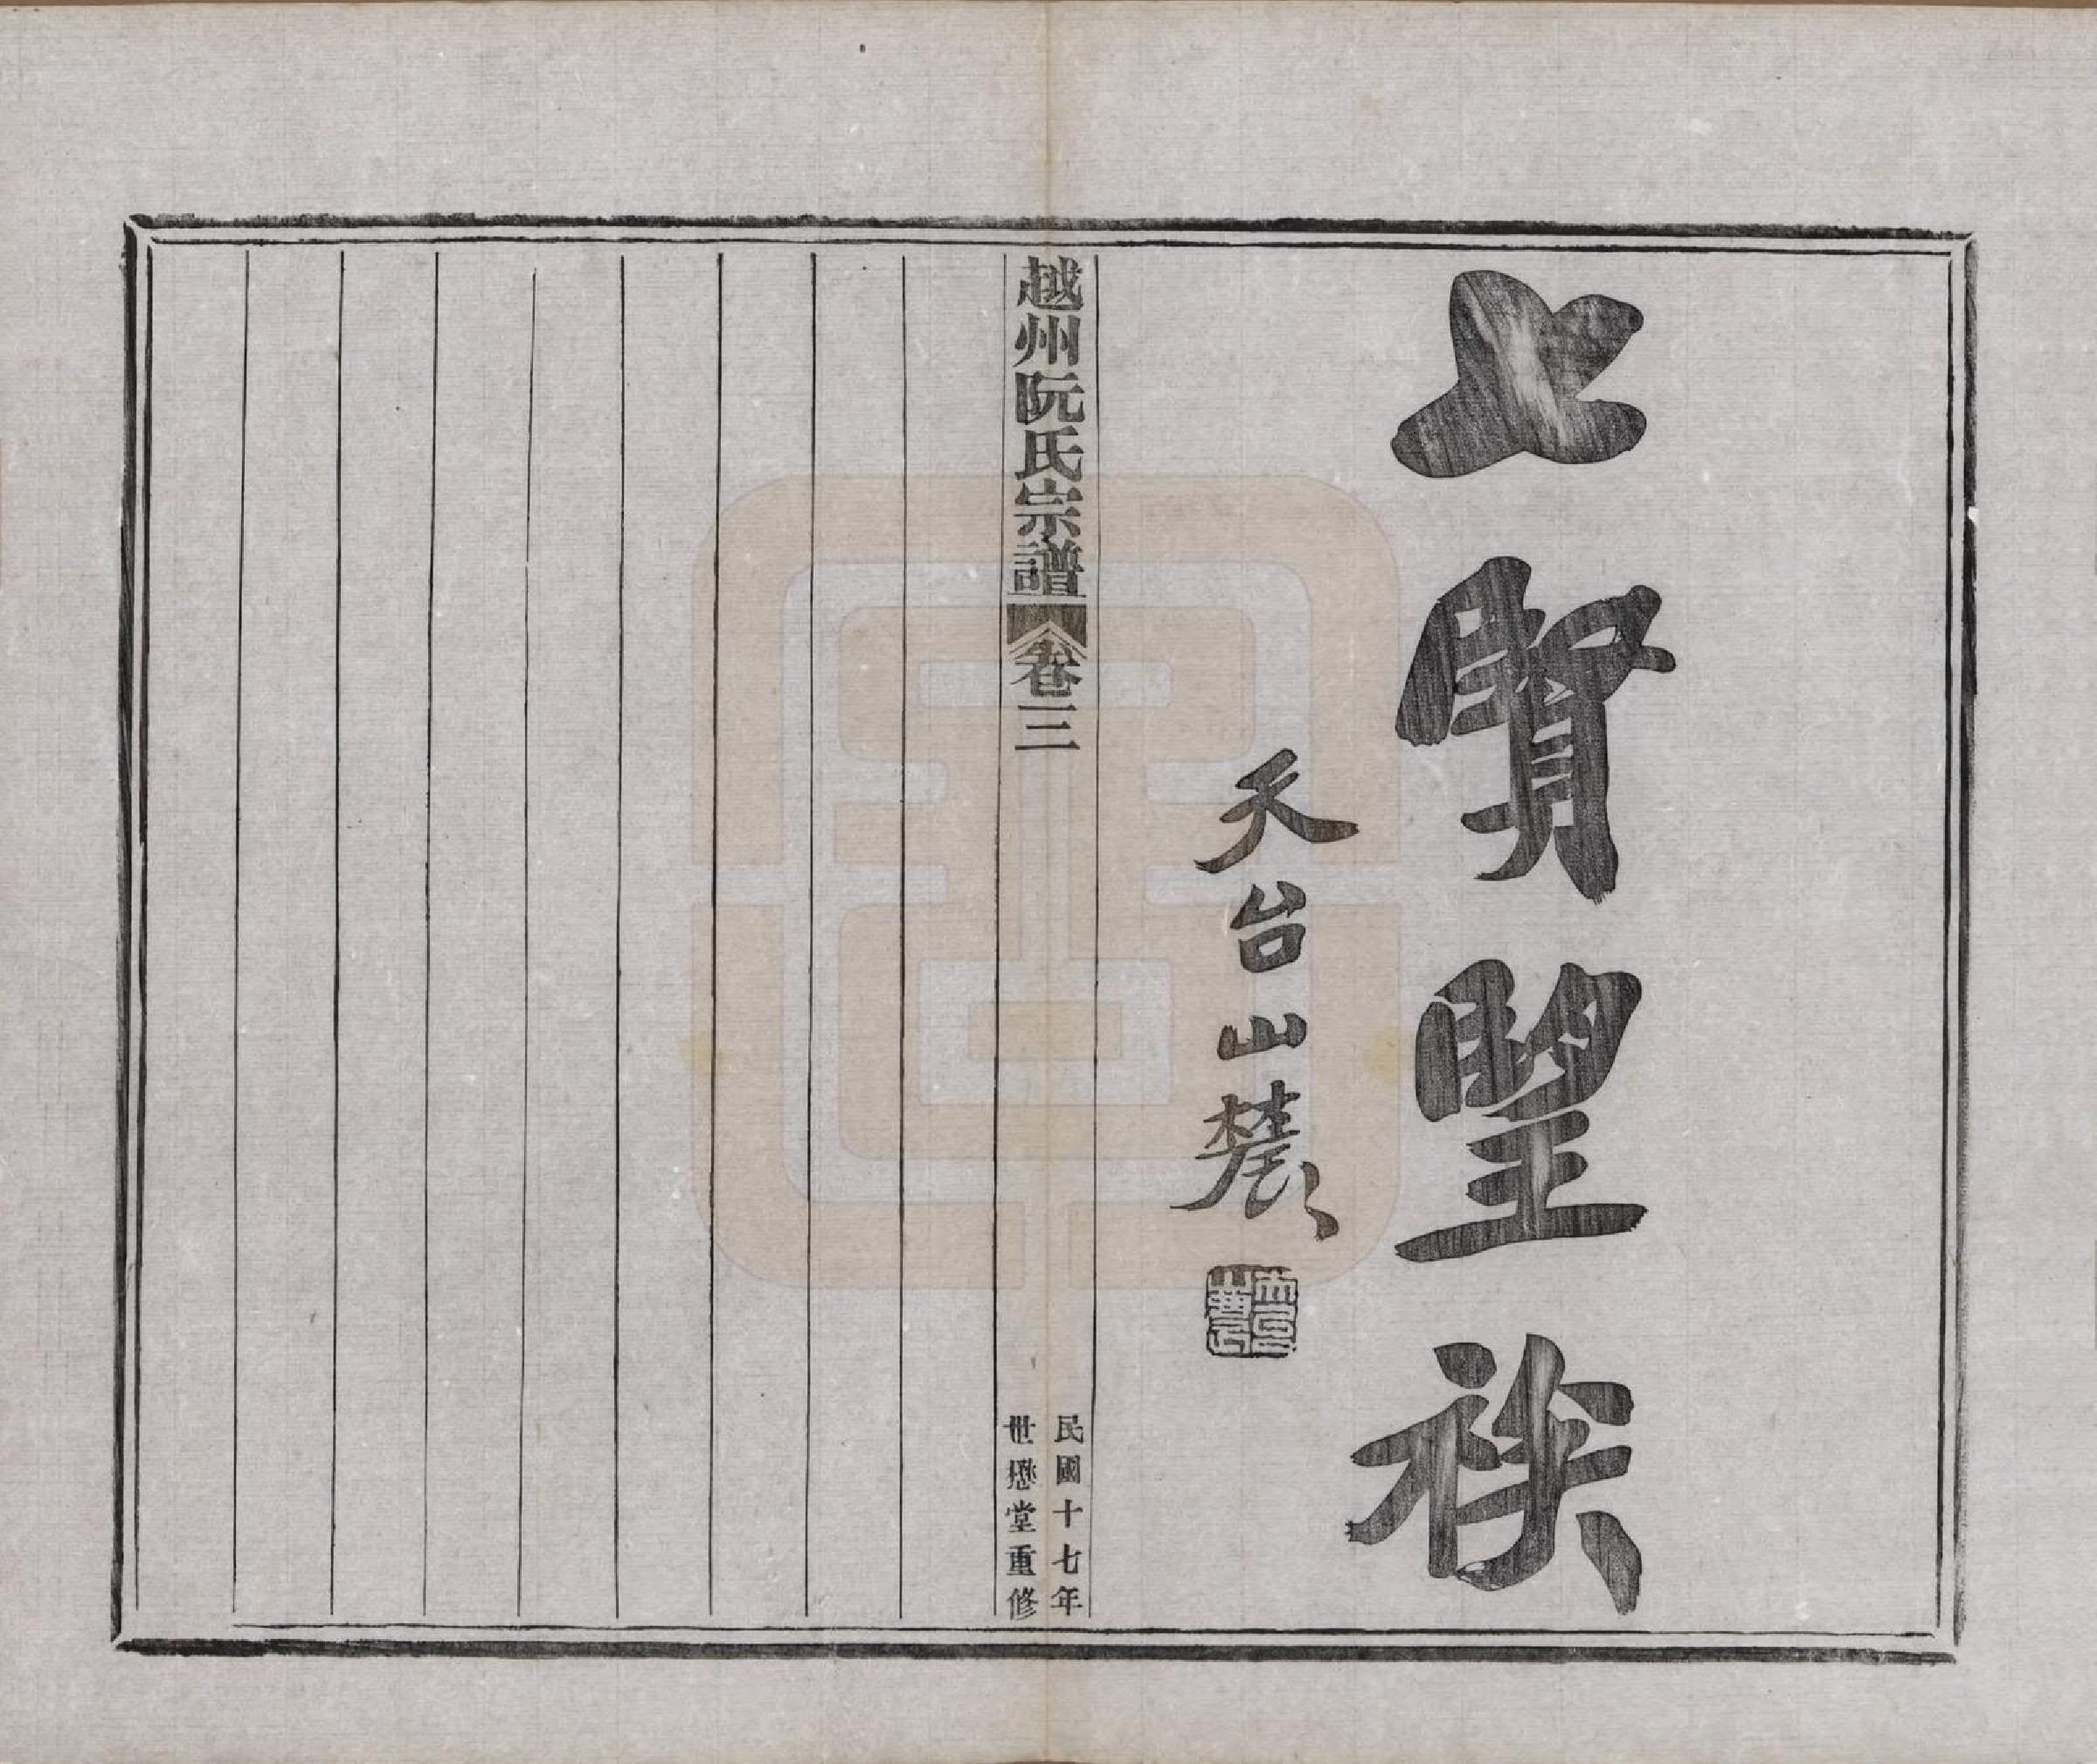 七賢望族
天台山農
天台山農
越州阮氏宗譜
卷三
民國十七年
世懋堂重修